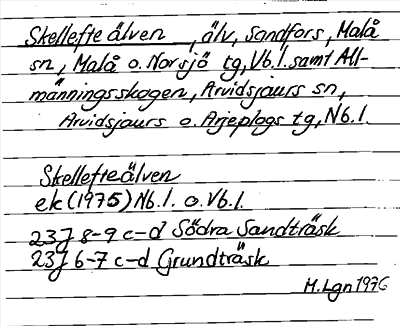 Skellefte älven, älv, Sandfors, Malå
sn, Malå o. Norsjö tg, Vb.l. samt All-
männingsskogen, Arvidsjaurs sn,
Arvidsjaurs o. Arjeplogs tg, Nb.l.
Skellefteälven
ek (1975) Nb.l. o. Vb.l.
23J 8-9 c-d Södra Sandträsk
23J 6-7 c-d Grundträsk
M.Lgn 1976